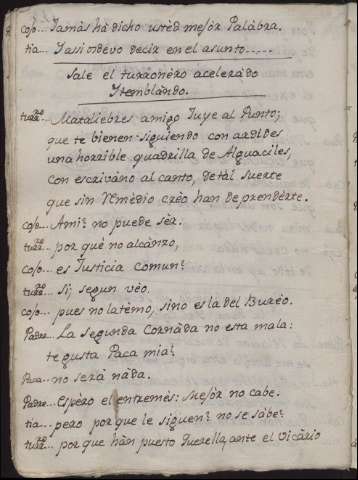 cojo... Jamàs hà dicho usted mejor Palàbra.
tia... Y asi devo decir en el asunto.....
Sale el turronèro aceleràdo
Y temblàndo.
turro... Mataliebres amigo huye al Punto;
que te bienen siguiendo con ardides
una horrible quadrilla de Alguaciles,
con escrivàno al canto, de tàl suerte
que sin Remèdio crèo han de prendèrte.
cojo... A mi? no puede sèr.
turro... por què no alcànzo,
cojo... es Justicia comun?
turro... Si; segun vèo.
cojo... pues no la tèmo, sino es la del Burèo.
Padre... La segunda Cornàda no esta mala:
te gusta Paca mia?
Paca... no serà nàda.
Padre... Espèro el entremès: Mejòr no cabe.
tia... pero porque le siguen? no se sàbe?
turro... porque hàn puesto Querella ante el Vicàrio